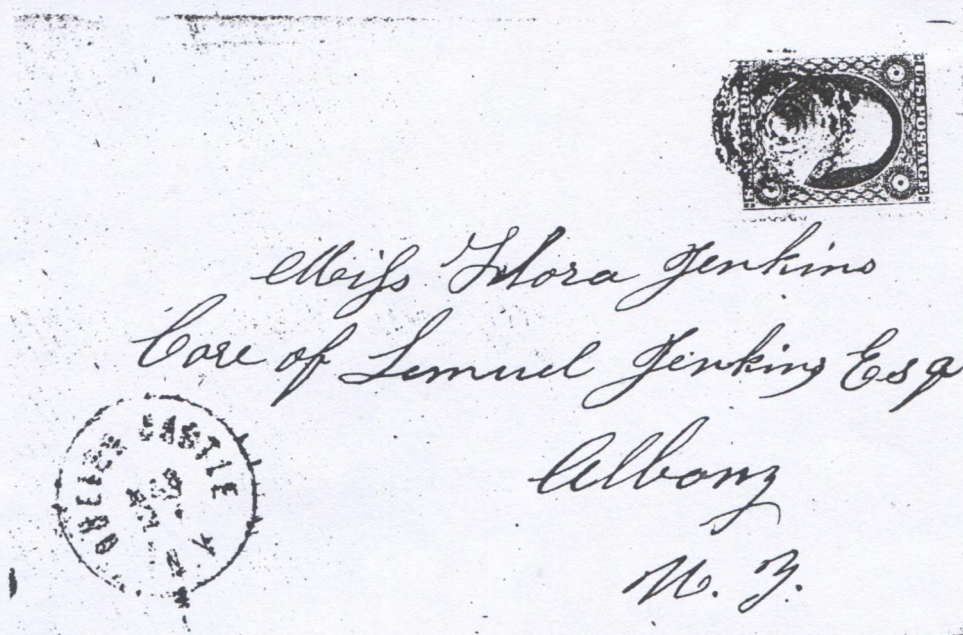 U.S. POSTAGE
Miss Flora Jenkins
Care of Lemuel Jenkins Esq
Albany
N. Y.
CASTLE